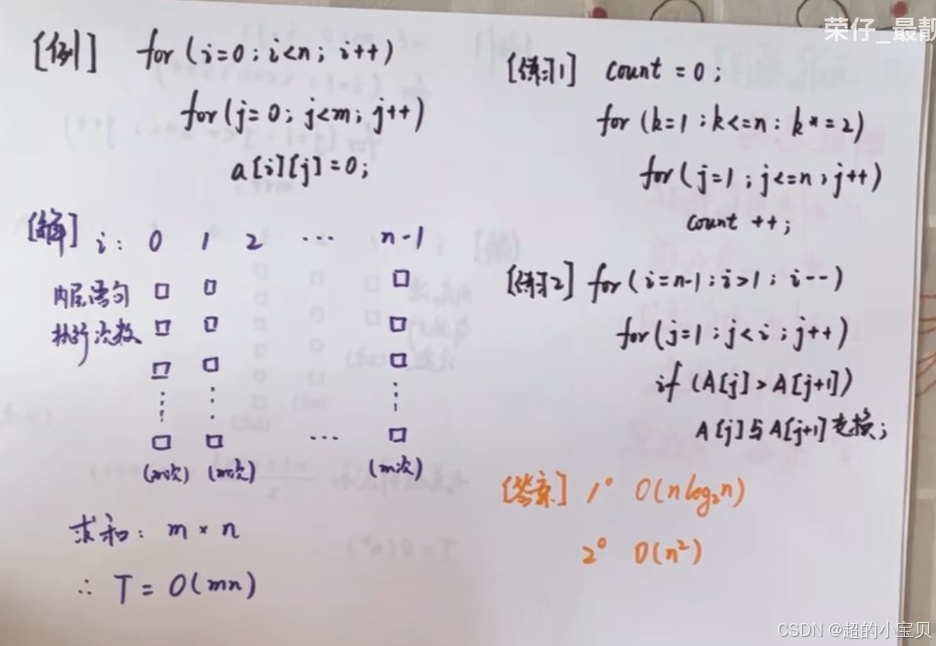 [例] for(i=0;i<n;i++)
for(j=0;j<m;j++)
a[i][j]=0;
[解] i: 0 1 2 ... n-1
内层语句
执行次数
(m次) (m次) ... (m次)
求和: m×n
∴ T=O(mn)
荣仔_最靓
[练习1] count=0;
for(k=1;k<=n:k*=2)
for(j=1;j<=n;j++)
count ++;
[练习2] for(i=n-1;i>1;i--)
for(j=1;j<i;j++)
if (A[j]>A[j+1])
A[j]与A[j+1]交换;
[答案] 1° O(nlog₂n)
2° O(n²)
CSDN @超的小宝贝